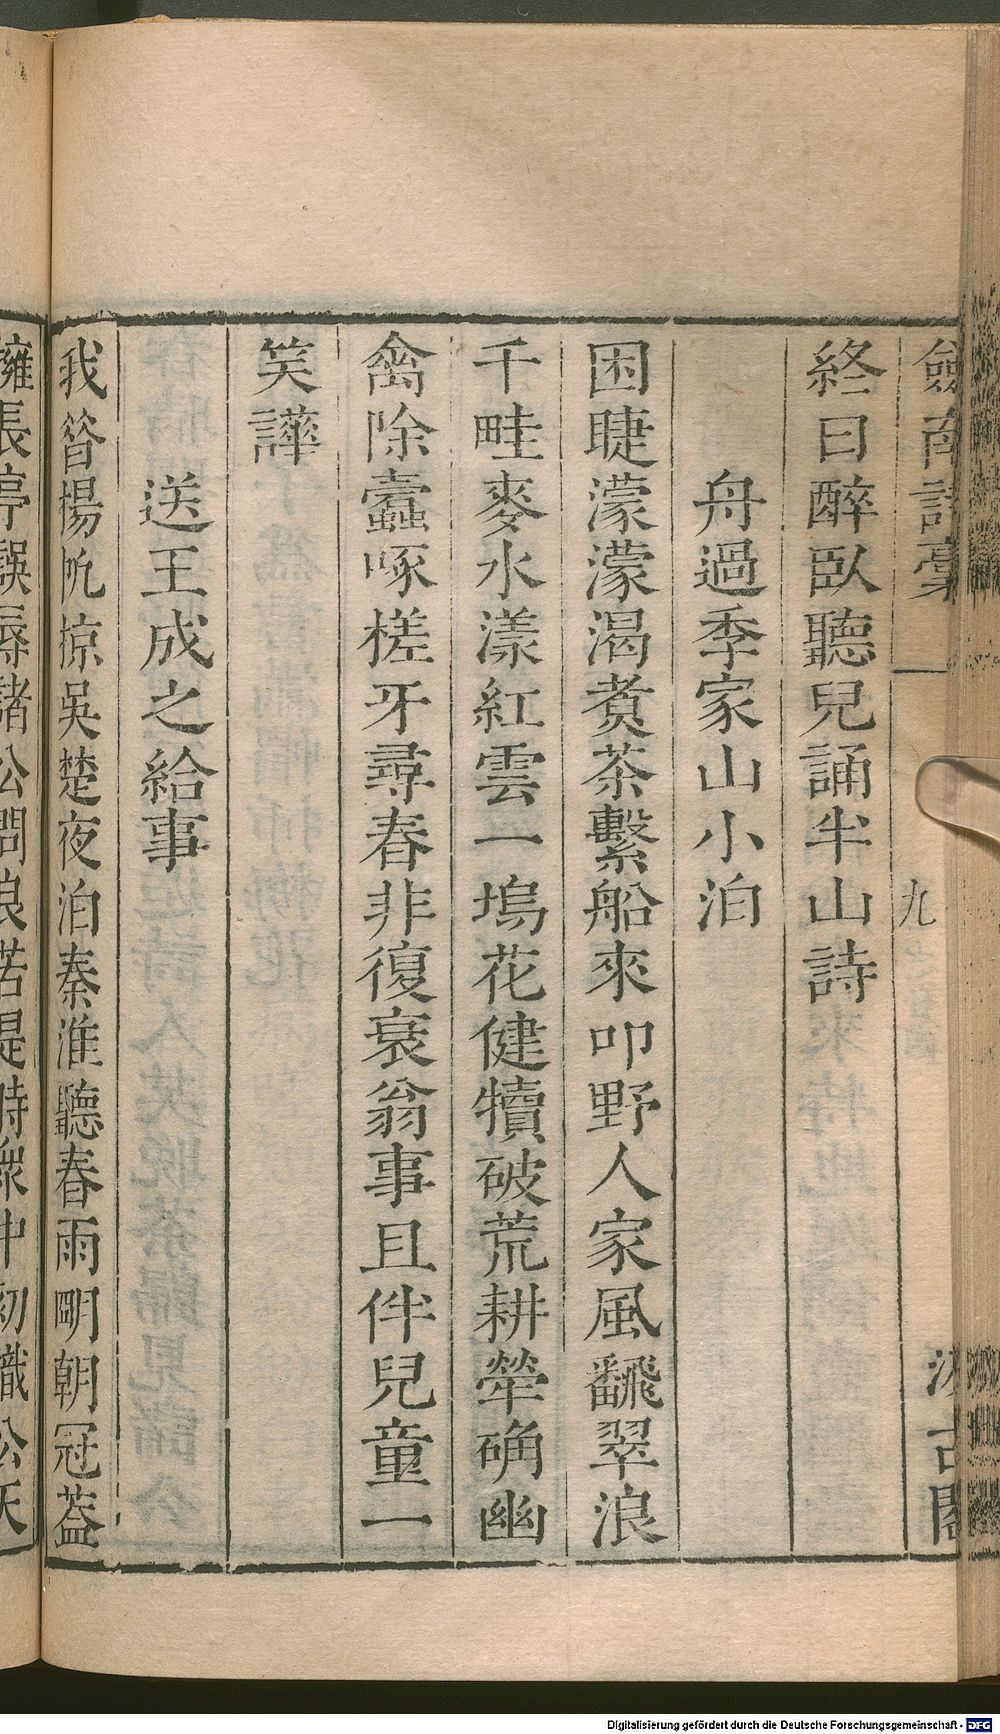 劒南詩稾
九
汲古閣
終日醉臥聽兒誦半山詩
舟過季家山小泊
困睫濛濛渴煑茶繫船來叩野人家風翻翠浪
千畦麥水漾紅雲一塢花健犢破荒耕犖确幽
禽除蠹啄槎牙尋春非復衰翁事且伴兒童一
笑譁
送王成之給事
我昝揚帆掠吳楚夜泊秦淮聽春雨朙朝冠葢
擁長亭誤辱諸公問良苦是時衆中初識公天
Digitalisierung gefördert durch die Deutsche Forschungsgemeinschaft - DFG